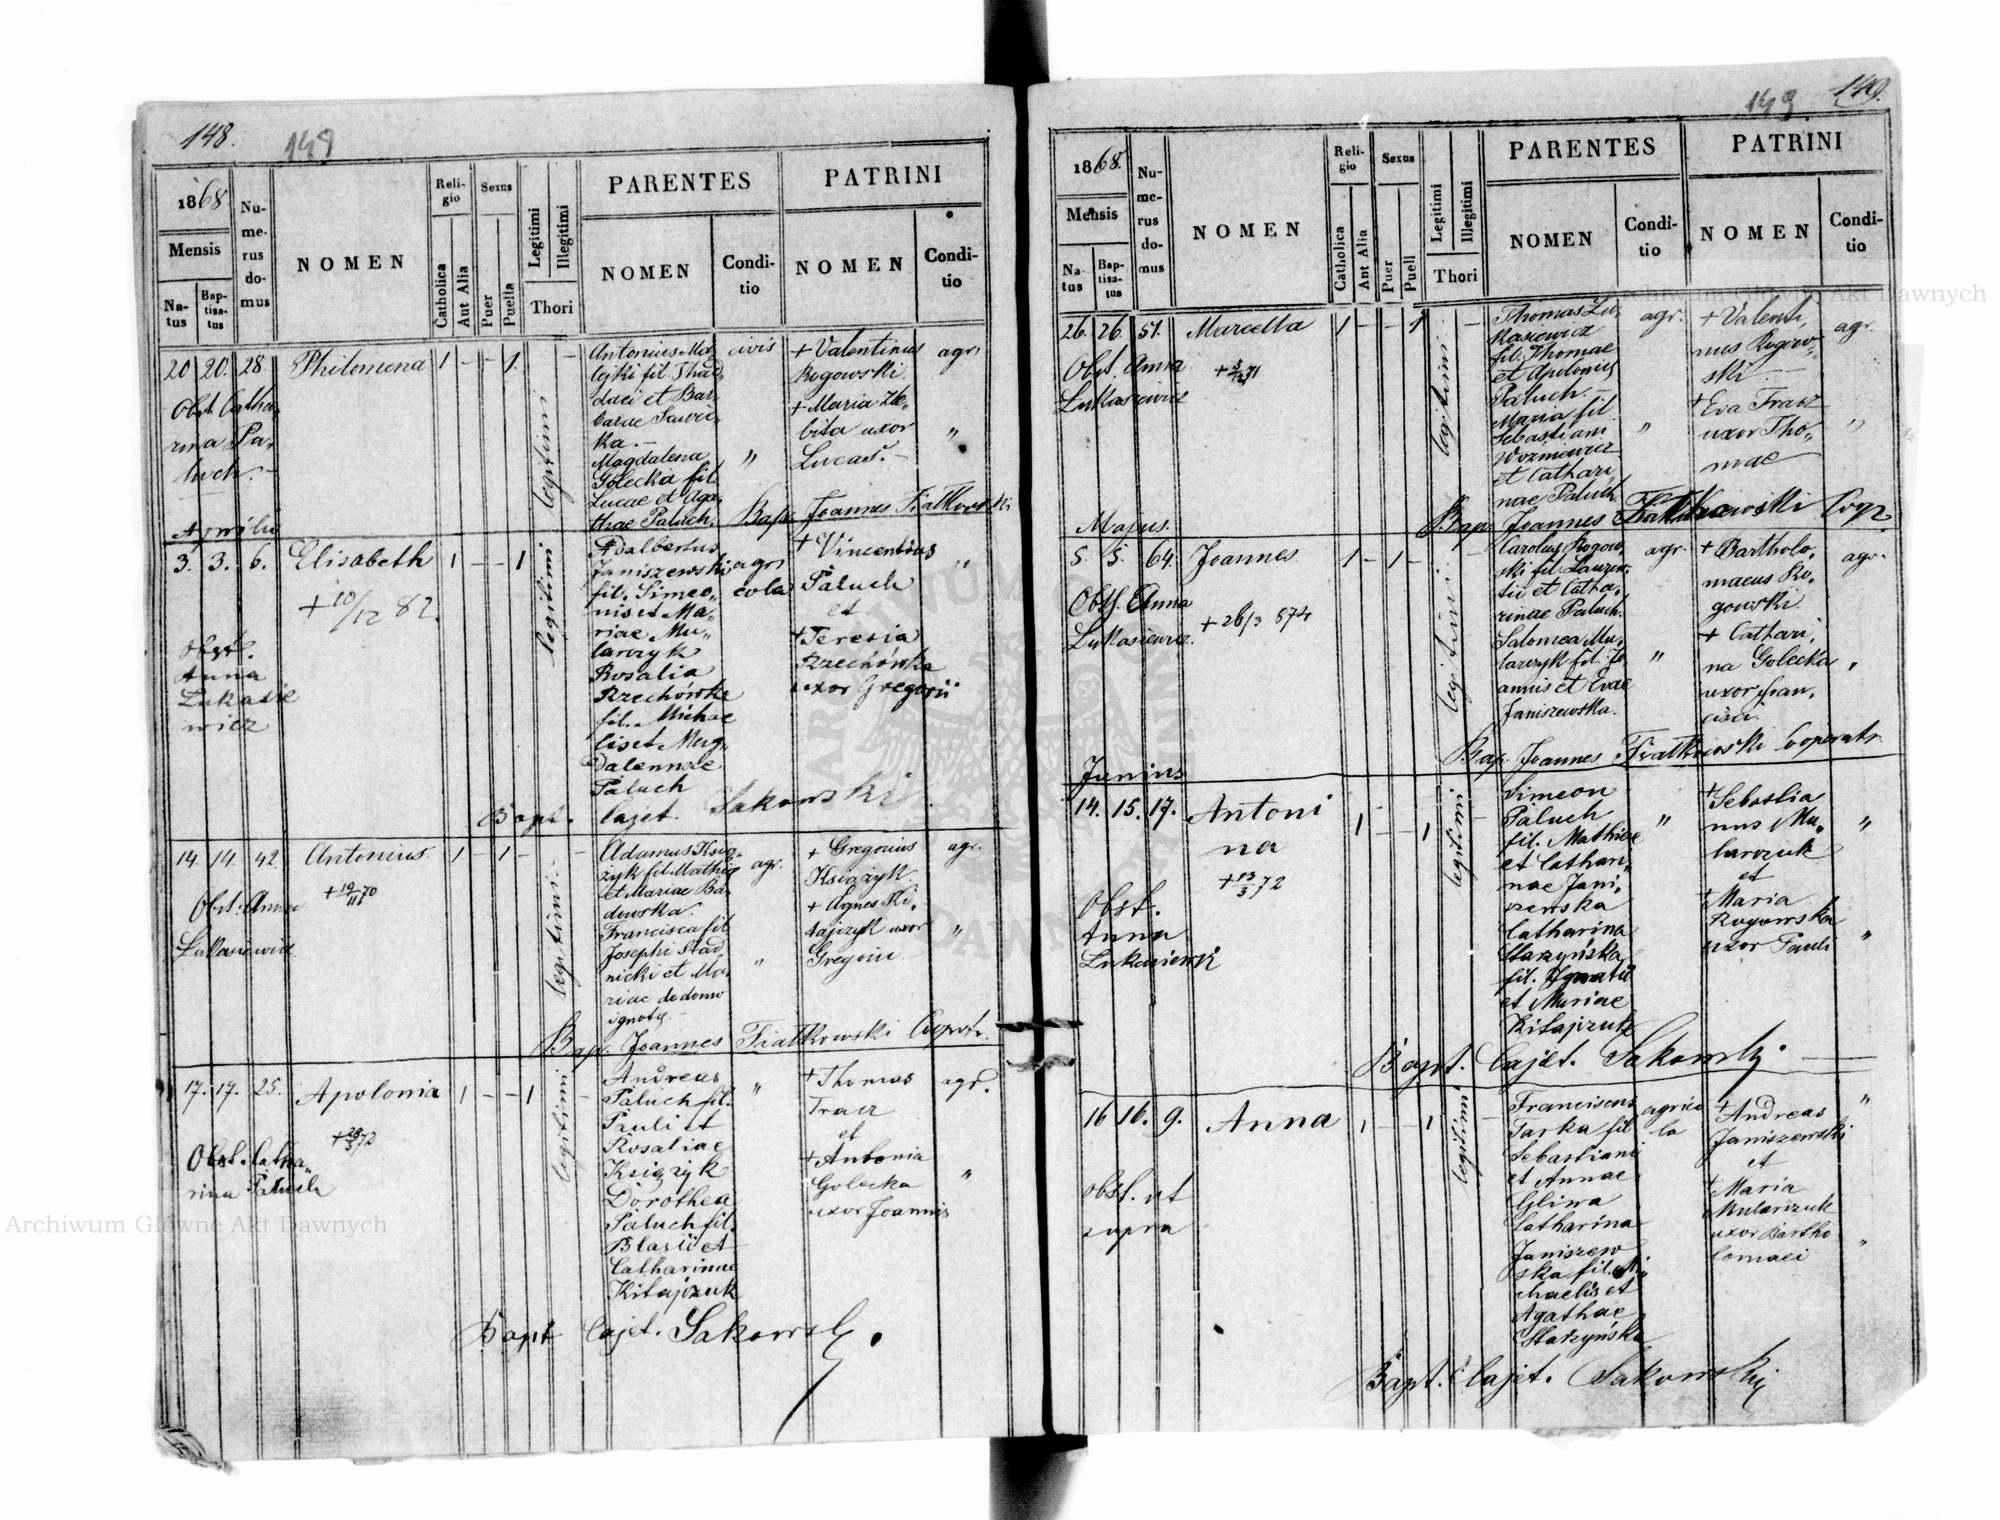 148.
148
1868.
Mensis
Na-
tus
Bap-
tisa-
tus
Nu-
me-
rus
do-
mus
NOMEN
Reli-
gio
Catholica
Aut Alia
Sexus
Puer
Puella
Legitimi
Illegitimi
Thori
PARENTES
NOMEN
Condi-
tio
PATRINI
NOMEN
Condi-
tio
20 20. 28. Philomena 1 - - 1. -
Obst. Catha-
rina Pa-
luch.-
legitimi
Antonius Mo-
lejki fil. Thad-
daei et Bar-
barae Sawic-
ka.-
Magdalena
Golecka fil.
Lucae et Aga-
thae Paluch.
civis
"
+ Valentinus
Rogowski
+ Maria
bita uxor
Lucae.-
agr.
"
Bap. Joannes Fiatkowski
Aprilis
3. 3. 6. Elisabeth 1 - - 1
+ 10/12 82.
Obst.
Anna
Lukasie
wicz
legitimi
Adalbertus
Janiszewski
fil. Simeo-
nis et Ma-
riae Mu-
larczyk
Rosalia
Rzechówska
fil. Michae
lis et Mag-
dalennae
Paluch
agri
cola
+ Vincentius
Paluch
et
+ Teresia
Rzechówska
uxor Gregorii
"
Bapt. Cajet. Sakowski.
14. 14. 42. Antonius 1 - 1 - -
+ 19/11 70
Obst: Anna
Lukasiewicz
legitimi.
Adamus Książ-
zyk fil. Mathiae
et Mariae Ba-
dowska.
Francisca fil
Josephi Stad-
nicki et Ma-
riae de domo
ignota.-
agr.
"
+ Gregorius
Książyk
+ Agnes Ki-
tajczyk uxor
Gregorii
agr.
"
Bap. Joannes Fiatkowski Cooprtr.
17. 17. 25. Apolonia 1 - - 1 -
+ 28/3 72
Obst. Catha-
rina Paluch
legitimi
Andreas
Paluch fil.
Pauli et
Rosaliae
Książyk
Dorothea
Paluch fil.
Blasii et
Catharinae
Kitajczuk
"
+ Thomas
Tracz
et
+ Antonia
Golecka
uxor Joannis
agr.
"
Bapt Cajet. Sakowski.
149
149.
1868.
Mensis
Na-
tus
Bap-
tisa-
tus
Nu-
me-
rus
do-
mus
NOMEN
Reli-
gio
Catholica
Ant Alia
Sexus
Puer
Puell
Legitimi
Illegitimi
Thori
PARENTES
NOMEN
Condi-
tio
PATRINI
NOMEN
Condi-
tio
26. 26. 51. Marcella 1 - - 1 -
+ 5/12 71
Obst. Anna
Lukasiewicz
legitimi
Thomas Lu-
kasiewicz
fil. Thomae
et Apolonia
Paluch.
Maria fil.
Sebastiani
Wozniewicz
et Cathari
nae Paluch.
agr.
"
+ Valenti-
nus Rogow-
ski -
+ Eva Tracz
uxor Tho-
mae
agr.
"
Bap. Joannes Fiatkowski Coop.
Majus.
5. 5. 64. Joannes 1 - 1 - -
+ 26/3 874
Obst. Anna
Lukasiewicz.
legitimi.
Carolus Rogow-
ski fil. Lauren-
tii et Catha-
rinae Paluch.
Salomea Mu-
larczyk fil. Jo-
annis et Evae
Janiszewska.
agr.
"
+ Bartholo-
maeus Ro-
gowski
+ Cathari-
na Golecka
uxor Fran-
cisci.
agr.
"
Bap. Joannes Fiatkowski Cooperatr.
Junius
14. 15. 17. Antoni
na
1 - - 1
+ 13/3 72
Obst.
Anna
Lukasiewicz
legitimi
Simeon
Paluch
fil. Mathiae
et Cathari-
nae Jani-
szewska
Catharina
Starzyńska
fil. Ignatii
et Mariae
Kitajczuk
"
+ Sebastia
nus Mu-
larczuk
et
+ Maria
Rogowska
uxor Pauli
"
"
Bapt. Cajet. Sakowski.
16 16. 9. Anna 1 - - 1 -
obst. ut
supra
legitimi
Franciscus
Tarka fil
Sebastiani
et Annae
Glina
Catharina
Janiszew-
ska fil. Mi-
chaelis et
Agathae
Starzyńska
agrico
la
+ Andreas
Janiszewski
et
+ Maria
Mularczuk
uxor Bartho
lomaei
"
"
Bapt. Cajet. Sakowski
Archiwum Główne Akt Dawnych
Archiwum Główne Akt Dawnych